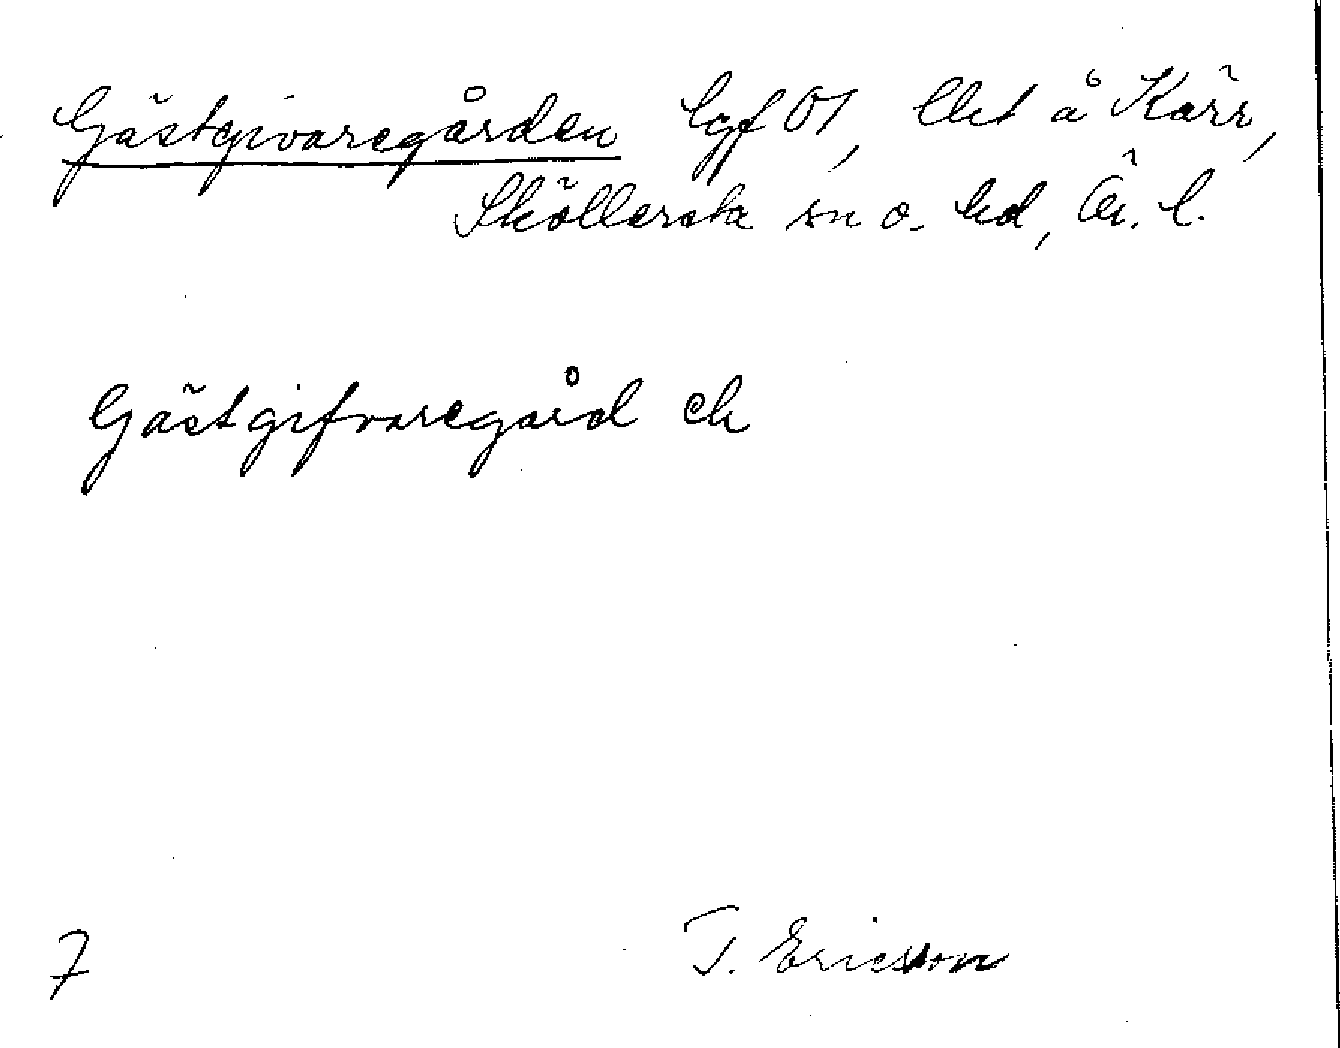 Gästgivaregården lgf 01, lht å Kärr,
Sköllersta sn o. hd, Ör. l.
Gästgifvaregård ek
7
T. Ericsson